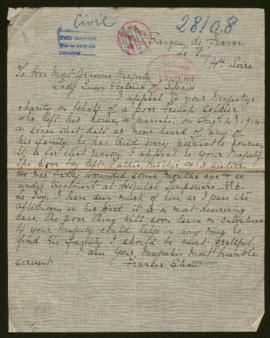 Civil
28108
Banque de France
Le Puy
Hte Loire
To Her Most Gracious Majesty
Lady Queen Victoria of Spain
I appeal to your Majesty's
charity on behalf of a poor British soldier
who left his home & parents on Aug 4th 1914
& since that date as never heard of any of
his family, he has tried every possible source,
it is for that reason I appeal to your Majesty.
The poor boy left a mother and six sisters
He was badly wounded some months ago & is
under treatment at Hospital Temporaire No
Le Puy, I have seen much of him as I pass the
afternoons in his Ward it is a most deserving
case, the poor thing will soon leave on convalescence
If your Majesty could help in any way to
find his family I should be most grateful
I am Your Majesties most humble
servant
Frances Shaw